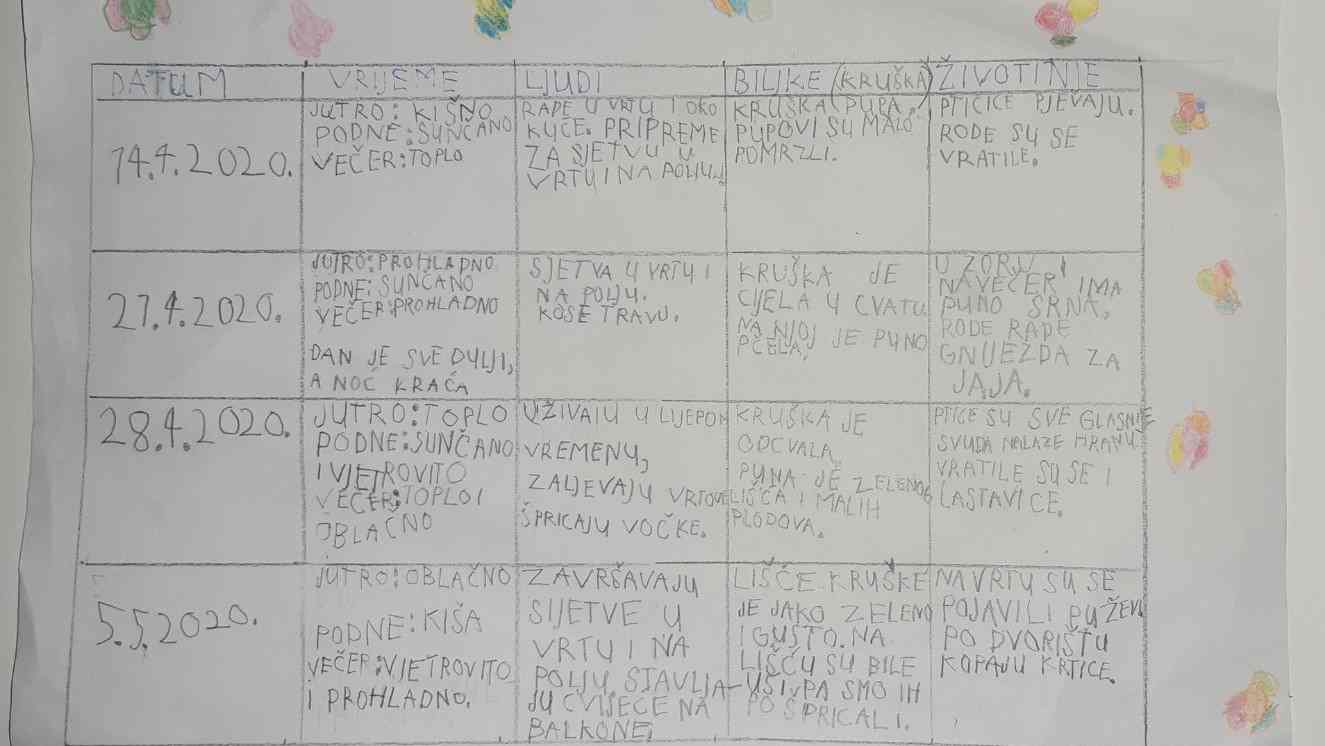 DATUM
VRIJEME
LJUDI
BILJKE (KRUŠKA)
ŽIVOTINJE
14.4.2020.
JUTRO: KIŠNO
PODNE: SUNČANO
VEČER: TOPLO
RADE U VRTU I OKO
KUĆE. PRIPREME
ZA SJETVU U
VRTU I NA POLJU.
KRUŠKA PUPA,
PUPOVI SU MALO
POMRZLI.
PTIČICE PJEVAJU.
RODE SU SE
VRATILE.
21.4.2020.
JUTRO: PROHLADNO
PODNE: SUNČANO
VEČER: PROHLADNO
DAN JE SVE DULJI,
A NOĆ KRAĆA
SJETVA U VRTU I
NA POLJU.
KOSE TRAVU.
KRUŠKA JE
CIJELA U CVATU
NA NJOJ JE PUNO
PČELA,
U ZORU I
NAVEČER IMA
PUNO SRNA,
RODE RADE
GNIJEZDA ZA
JAJA.
28.4.2020.
JUTRO: TOPLO
PODNE: SUNČANO
I VJETROVITO
VEČER: TOPLO I
OBLAČNO
UŽIVAJU U LIJEPOM
VREMENU,
ZALJEVAJU VRTOVE
ŠPRICAJU VOČKE.
KRUŠKA JE
ODCVALA,
PUNA JE ZELENOG
LIŠĆA I MALIH
PLODOVA.
PTICE SU SVE GLASNIJE
SVUDA NALAZE HRANU
VRATILE SU SE I
LASTAVICE.
5.5.2020.
JUTRO: OBLAČNO
PODNE: KIŠA
VEČER: VJETROVITO
I PROHLADNO.
ZAVRŠAVAJU
SIJETVE U
VRTU I NA
POLJU. STAVLJA-
JU CVIJEĆE NA
BALKONE,
LIŠĆE KRUŠKE
JE JAKO ZELENO
I GUSTO. NA
LIŠĆU SU BILE
UŠI, PA SMO IH
POŠPRICALI.
NA VRTU SU SE
POJAVILI PUŽEVI
PO DVORIŠTU
KOPAJU KRTICE.